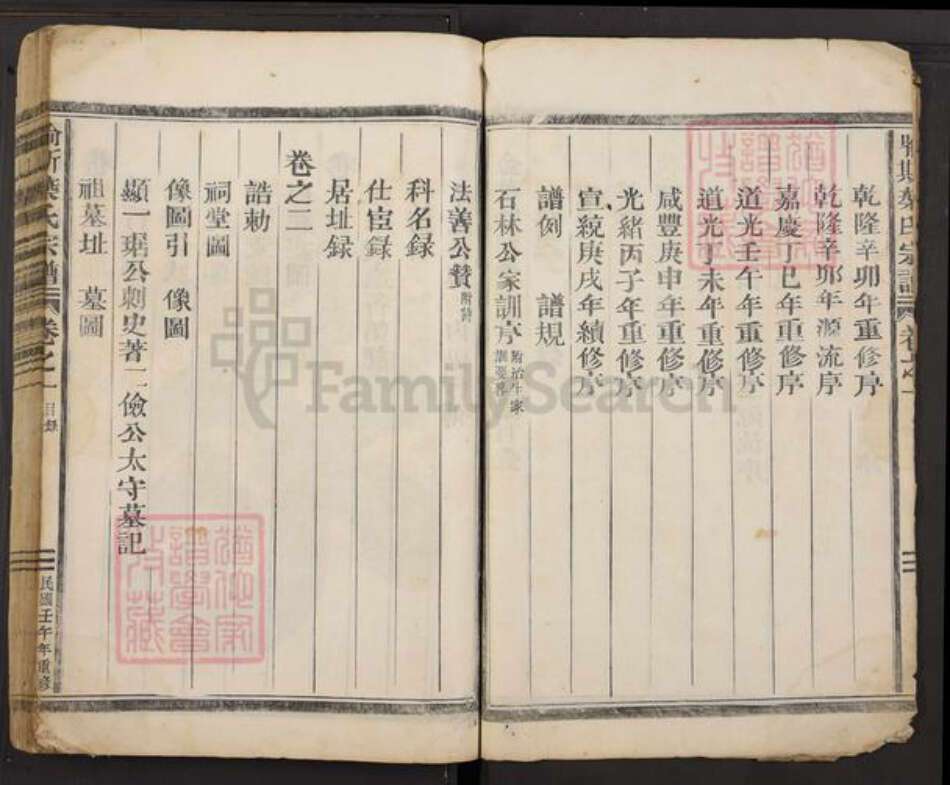 乾隆辛卯年重修序
乾隆辛卯年源流序
嘉慶丁巳年重修序
道光壬午年重修序
道光丁未年重修序
咸豐庚申年重修序
光緒丙子年重修序
宣統庚戌年續修序
譜例 譜規
石林公家訓序 附治生家訓要畧
法善公贊 附詩
科名録
仕宦録
居址録
卷之二
誥勅
祠堂圖
像圖引 像圖
顯一琚公刺史著二儉公太守墓記
祖墓址 墓圖
葉氏宗譜 卷之一 目録
民國壬午年重修
FamilySearch